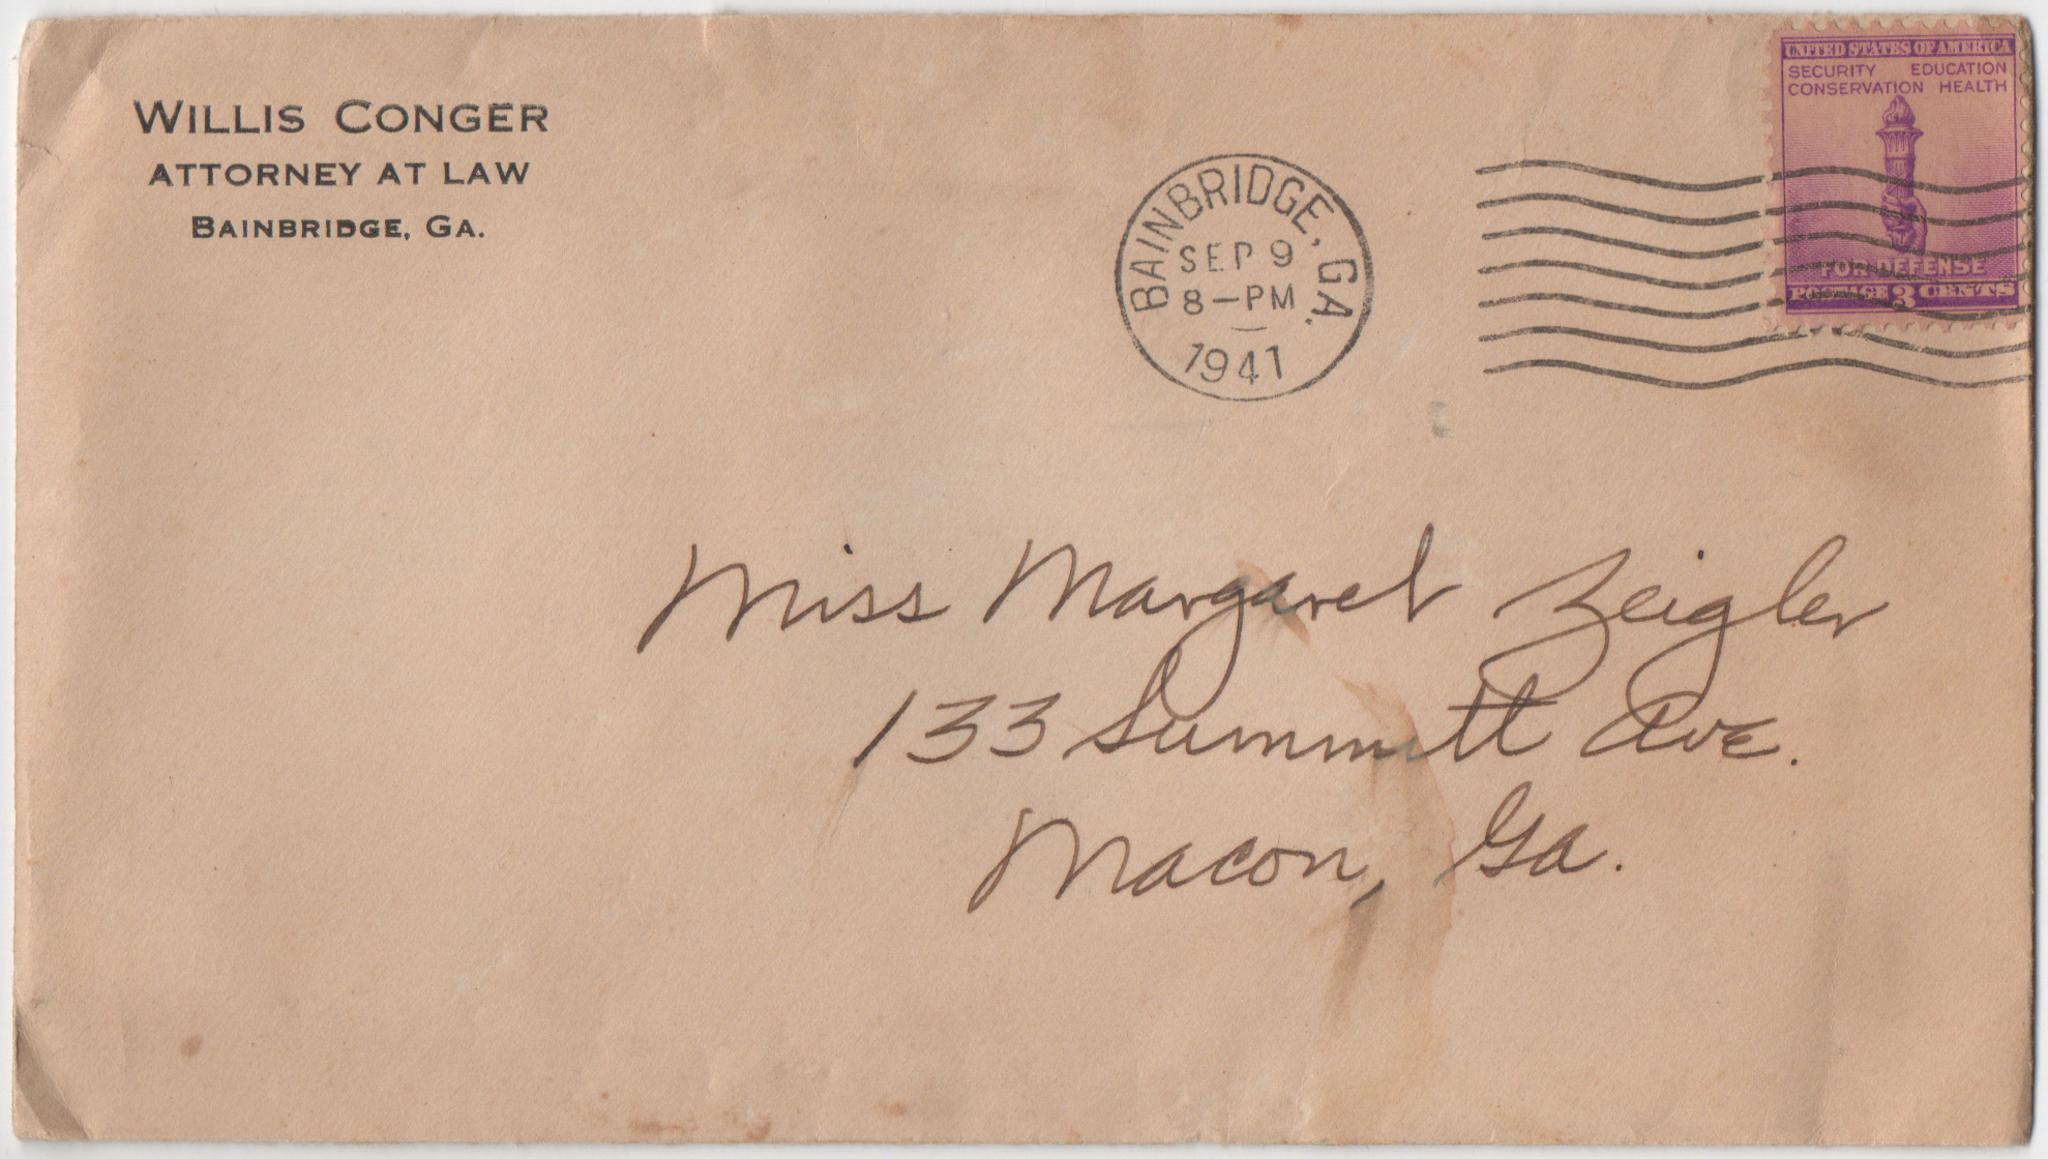 WILLIS CONGER
ATTORNEY AT LAW
BAINBRIDGE, GA.
BAINBRIDGE, GA.
SEP 9
8-PM
1941
UNITED STATES OF AMERICA
SECURITY EDUCATION
CONSERVATION HEALTH
FOR DEFENSE
POSTAGE 3 CENTS
Miss Margaret Zeigler
133 Summitt Ave.
Macon, Ga.